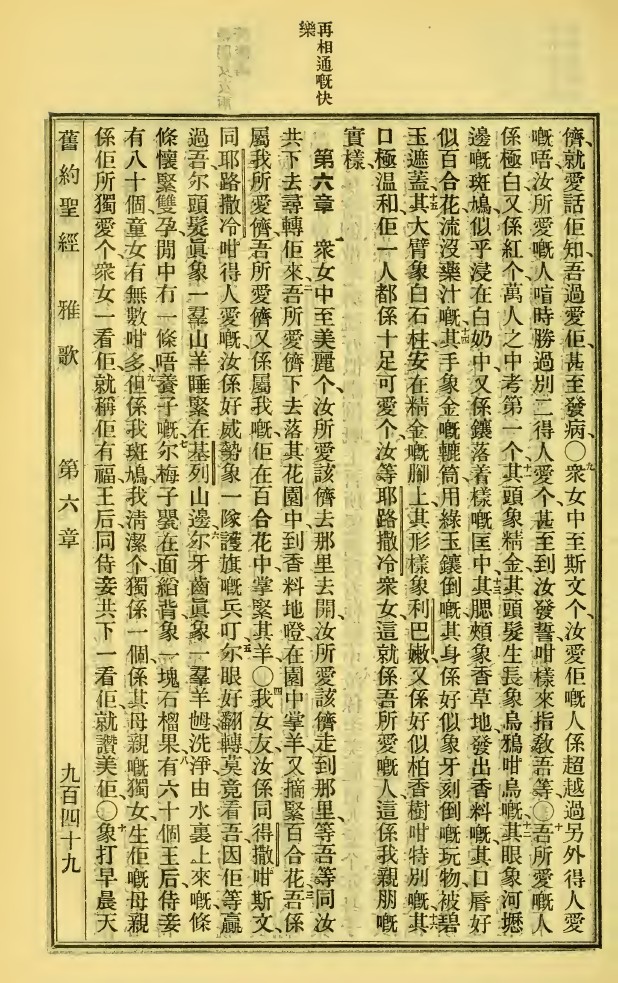 再相通嘅快
樂
儕、就愛話佢知、吾過愛佢、甚至發病、〇九衆女中至斯文个、汝愛佢嘅人係超越過另外得人愛
嘅唔、汝所愛嘅人喧時勝過別二得人愛个、甚至到汝發誓咁樣來指教吾等、〇十吾所愛嘅人
係極白、又係紅个、萬人之中考第一个、十一其頭象精金、其頭髮生長、象烏鴉咁烏嘅、十二其眼象河壢
邊嘅斑鳩、似乎浸在白奶中、又係鑲落着樣嘅匡中、十三其腮頰象香草地、發出香料嘅、其口脣好
似百合花、流沒藥汁嘅、十四其手象金嘅轆筒、用綠玉鑲倒嘅、其身係好似象牙刻倒嘅玩物、被碧
玉遮蓋、十五其大臂象白石柱、安在精金嘅腳上、其形樣象利巴嫩、又係好似柏香樹咁特別嘅、十六其
口極温和、佢一人都係十足可愛个、汝等耶路撒冷衆女、這就係吾所愛嘅人、這係我親朋嘅
實樣、
第六章 一衆女中至美麗个、汝所愛該儕去那里去開、汝所愛該儕走到那里、等吾等同汝
共下去尋轉佢來、二吾所愛儕下去落其花園中、到香料地墱、在園中掌羊、又摘緊百合花、三吾係
屬我所愛儕、吾所愛儕又係屬我嘅、佢在百合花中掌緊其羊、〇四我女友、汝係同得撒咁斯文、
同耶路撒冷咁得人愛嘅、汝係好威勢、象一隊護旗嘅兵叮、五尔眼好翻轉莫竟看吾、因佢等贏
過吾、尔頭髮眞象一羣山羊睡緊在基列山邊、六尔牙齒眞象一羣羊乸洗淨由水裏上來嘅、條
條懷緊雙孕、開中冇一條唔養子嘅、七尔梅子嬰在面縚背、象一塊石榴果、八有六十個王后、侍妾
有八十個、童女有無數咁多、九但係我斑鳩、我淸潔个、獨係一個、係其母親嘅獨女、生佢嘅母親
係佢所獨愛个、衆女一看佢、就稱佢有福、王后同侍妾共下一看佢、就讚美佢、〇十象打早晨天
舊約聖經 雅歌 第六章 九百四十九